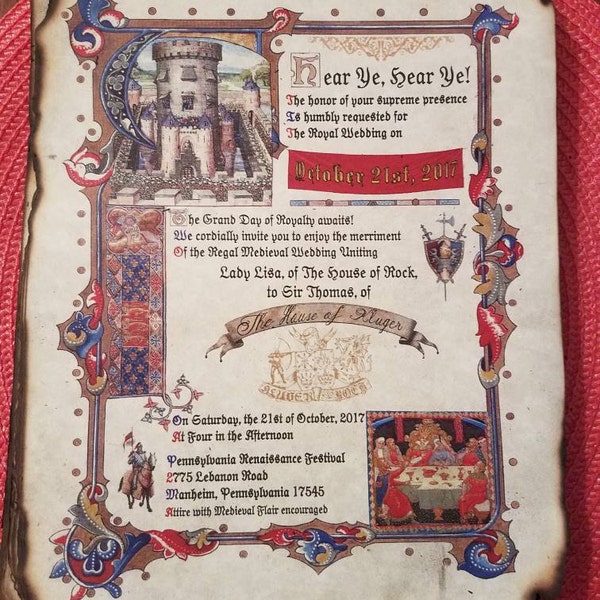 Hear Ye, Hear Ye!
The honor of your supreme presence
Is humbly requested for
The Royal Wedding on
October 21st, 2017
The Grand Day of Royalty awaits!
We cordially invite you to enjoy the merriment
Of the Regal Medieval Wedding Uniting
Lady Lisa, of The House of Rock,
to Sir Thomas, of
The House of Kluger
KLUGER ROCK
On Saturday, the 21st of October, 2017
At Four in the Afternoon
Pennsylvania Renaissance Festival
2775 Lebanon Road
Manheim, Pennsylvania 17545
Attire with Medieval Flair encouraged